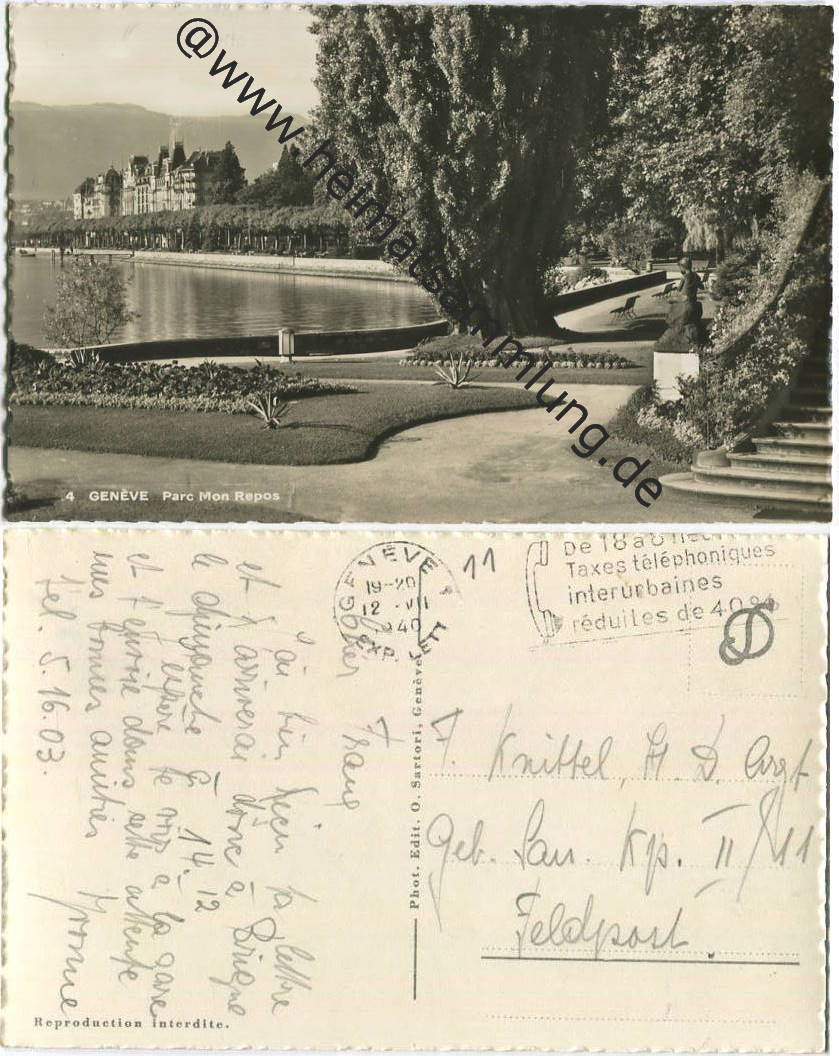 @www.heimatsammlung.de
4 GENÈVE Parc Mon Repos
GENÈVE 1
19-20
12 VII
1940
EXP. LETT
11
De 18 à 8 heures
Taxes téléphoniques
interurbaines
réduites de 40%
Cher Franz
J'ai bien reçu ta lettre
et j'arriverai donc à
le dimanche 14. 12
espère te voir à la gare
et t'envoie dans cette attente
mes bonnes amitiés Yvonne
Tel. 5.16.03.
Phot. Edit. O. Sartori, Genève
F. Knittel, H. D. Arzt
Geb. San. Kp. II/11
Feldpost.
Reproduction interdite.